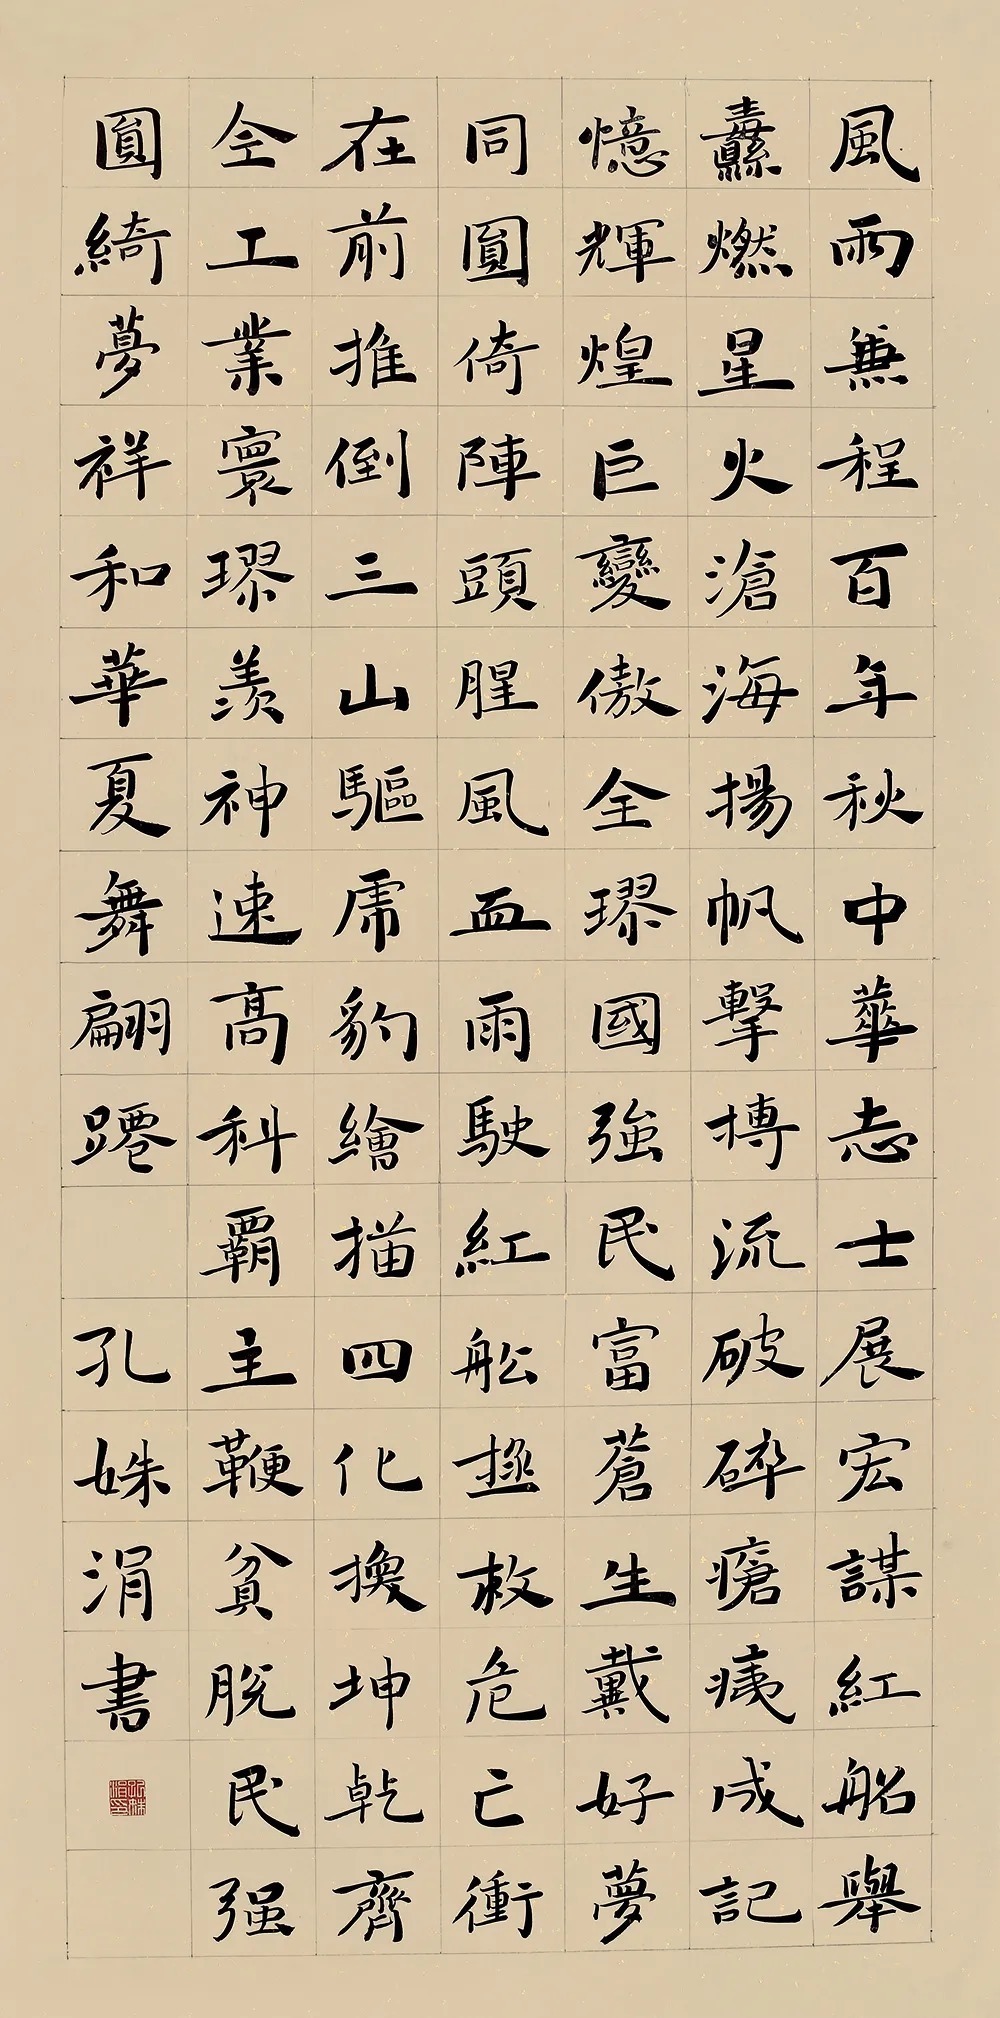 風雨兼程百年秋中華志士展宏謀紅船舉
纛燃星火滄海揚帆擊搏流破碎瘡痍成記
憶輝煌巨變傲全璆國強民富蒼生戴好夢
同圓倚陣頭腥風血雨駛紅舩拯救危亡衝
在前推倒三山驅虎豹繪描四化換坤乾齊
仝工業寰璆羨神速高科霸主鞭貧脫民强
圓綺夢祥和華夏舞翩躚 孔姝涓書